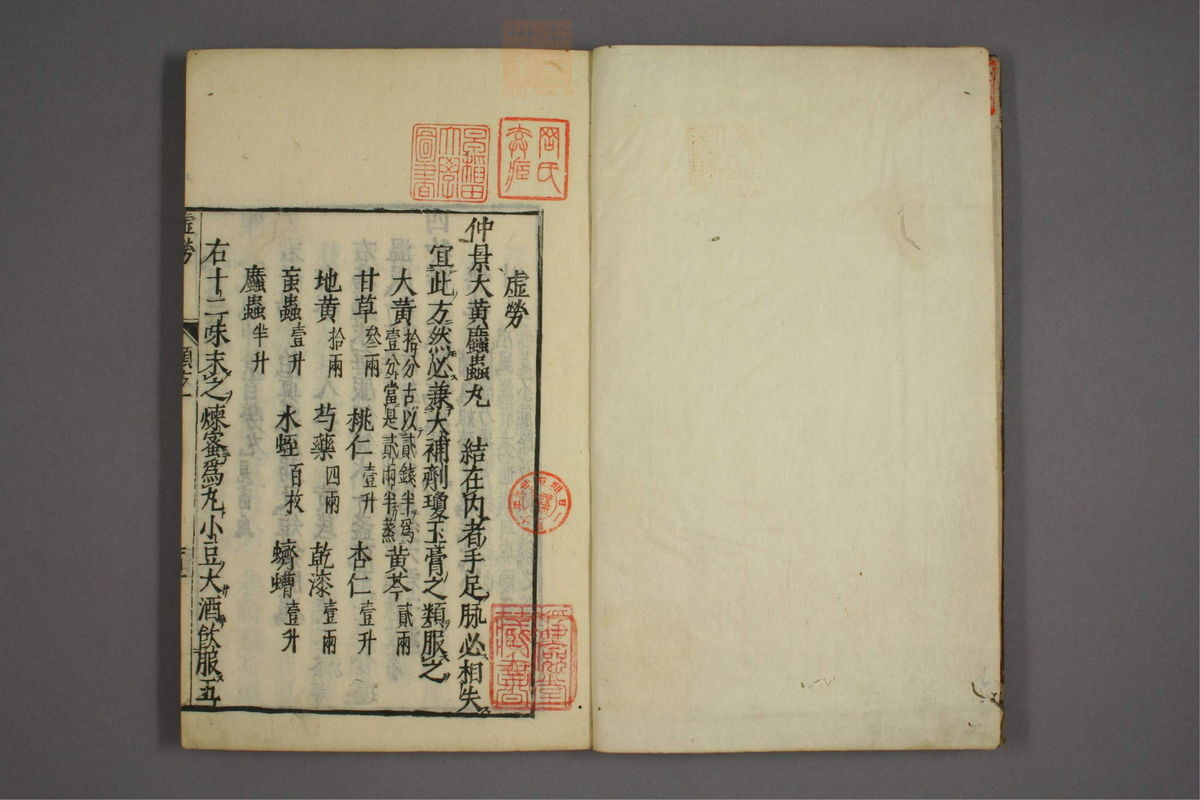 虛勞
仲景大黃䗪蟲丸　結在内者手足脉必相失
宜此方然必兼大補劑瓊玉膏之類服之
大黃 拾分古以貳錢半爲壹分當是貳兩半蒸 黃芩 貳兩
甘草 叄兩 桃仁 壹升 杏仁 壹升
地黃 拾兩 芍藥 四兩 乾漆 壹兩
䖟蟲 壹升 水蛭 百枚 蠐螬 壹升
䗪蟲 半升
右十二味末之煉蜜爲丸小豆大酒飲服五
虛勞
早稻田大學圖書